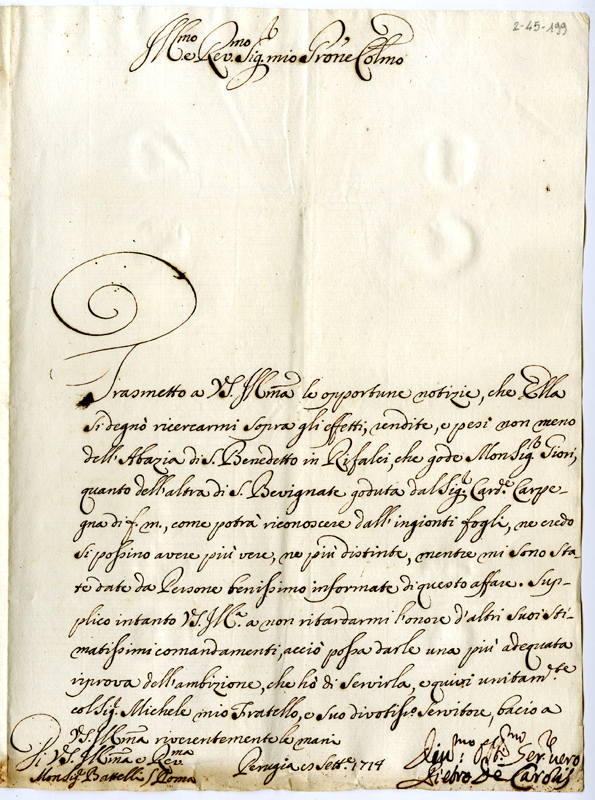 2-45-199
Ill.mo e Rev.mo Sig.r mio P.rone Col.mo
Trasmetto a V.S. Ill.ma le opportune notizie, che Ella
si degnò ricercarmi sopra gli effetti, rendite, e pesi non meno
dell'Abazia di S. Benedetto in Rifalei, che gode Monsig.r Giori,
quanto dell'altra di S. Bevignate goduta dal Sig.r Card.e Carpe-
gna di f. m., come potrà riconoscere dall'ingionti fogli, ne credo
si possino avere più vere, ne più distinte, mentre mi sono sta-
te date da Persone benissimo informate di questo affare. Sup-
plico intanto V.S. Ill.a a non ritardarmi l'onore d'altri suoi sti-
matissimi comandamenti, acciò possa darle una più adequata
riprova dell'ambizione, che hò di servirla, e quivi unitam.te
col Sig.r Michele mio Fratello, e suo divotiss.o Servitore, bacio a
V.S. Ill.ma riverentemente le mani
Di V.S. Ill.ma e Rev.ma Perugia Sett.e 1714
Dev.mo Ob.mo Ser.re vero
Monsig.r Battelli Roma
Pietro De Carolis